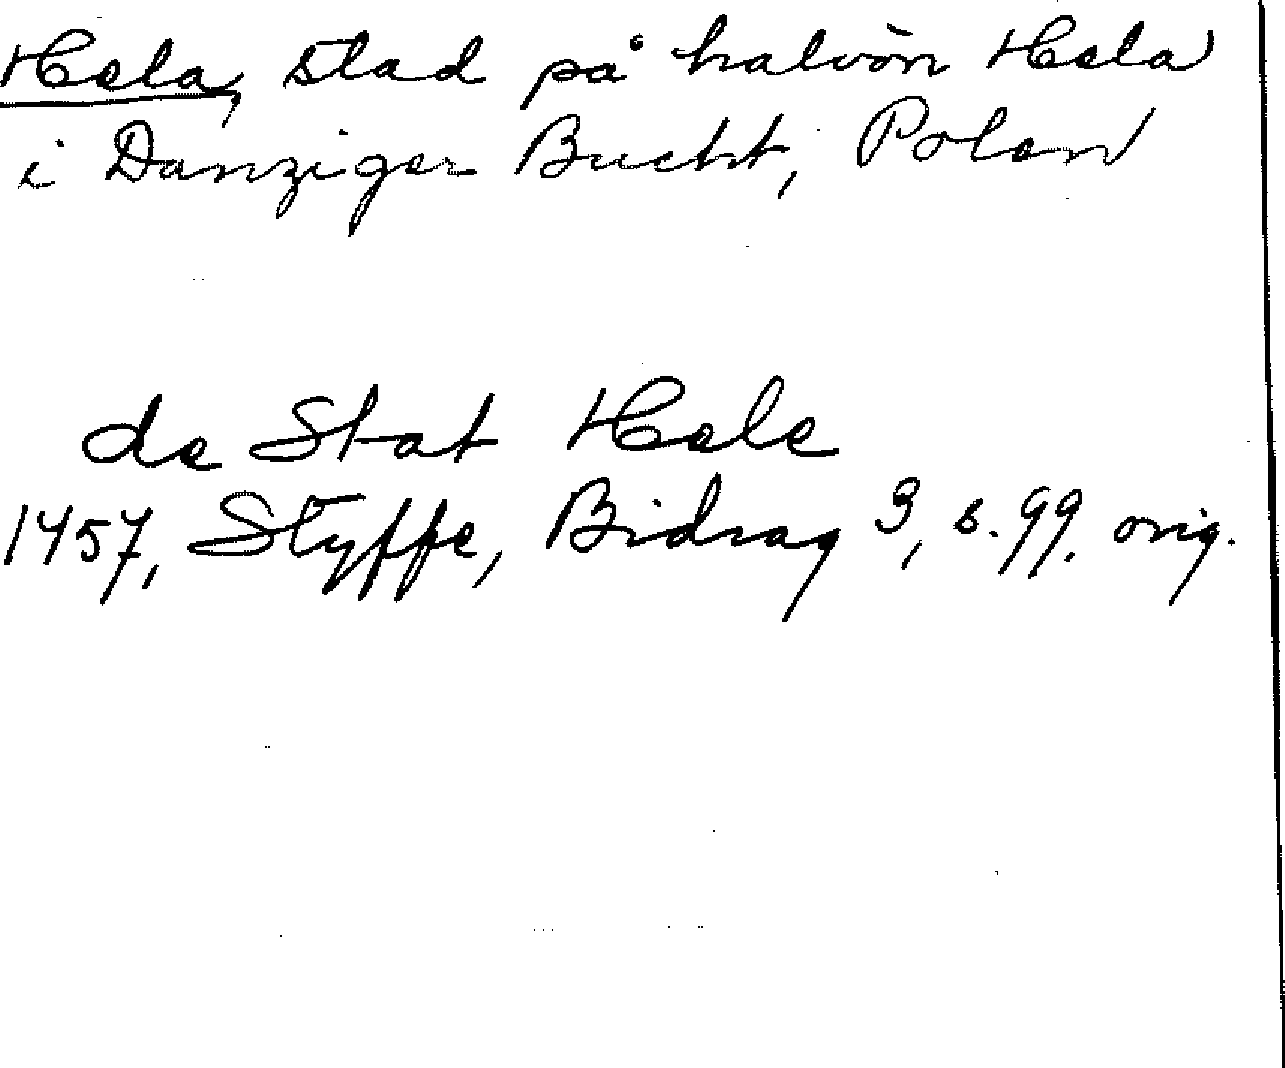 Hela, stad på halvön Hela
i Danziger Bucht, Polen
de Stat Hele
1457, Styffe, Bidrag 3, s. 99. orig.